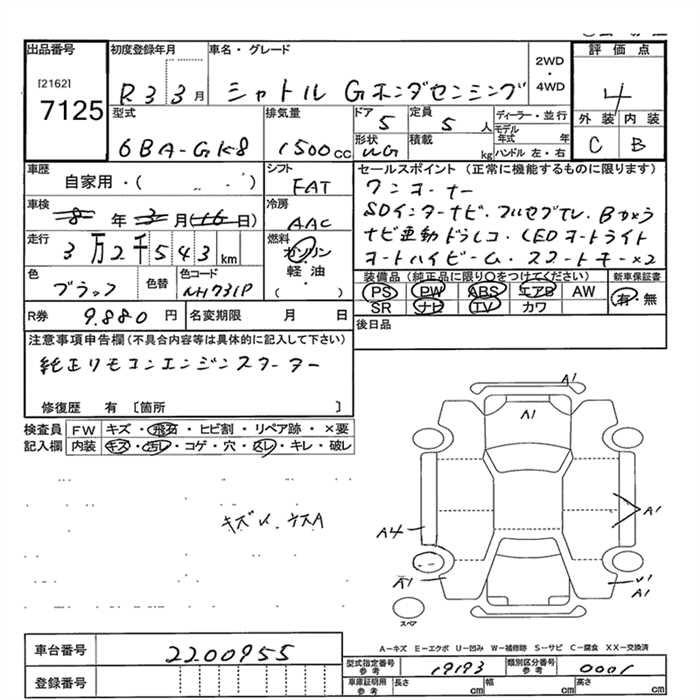 出品番号
[2162]
7125
初度登録年月
R3 3月
車名・グレード
シャトル Gホンダセンシング
2WD
・
4WD
評価点
4
外装 内装
C B
型式
6BA-GK8
排気量
1500cc
ドア
5
定員
5人
形状
WG
積載
kg
ディーラー・並行
モデル年式 年
ハンドル 左・右
車歴
自家用・( )
シフト
FAT
車検
8年3月(16日)
冷房
AAC
走行
3万2千543km
燃料
ガソリン
軽油
( )
色
ブラック
色替
色コード
NH731P
R券 9.880円
名変期限 月 日
セールスポイント (正常に機能するものに限ります)
ワンオーナー
SDインターナビ・フルセグTV・Bカメラ
ナビ連動ドラレコ・LEDオートライト
オートハイビーム・スマートキー×2
装備品(純正品に限り○をつけてください)
PS PW ABS エアB AW
SR ナビ TV カワ
新車保証書
有・無
後日品
注意事項申告欄(不具合内容等は具体的に記入して下さい)
純正リモコンエンジンスターター
修復歴 有 〔箇所 〕
検査員記入欄
FW キズ・飛石・ヒビ割・リペア跡・×要
内装 キズ・汚レ・コゲ・穴・スレ・キレ・破レ
A1
A1
A1
A4
A1
A1
スペア
A-キズ E-エクボ U-凹み W-補修跡 S-サビ C-腐食 XX-交換済
車台番号
2200955
登録番号
型式指定番号
参考
19193
類別区分番号
参考
0001
車庫証明用
参考
長さ cm 幅 cm 高さ cm